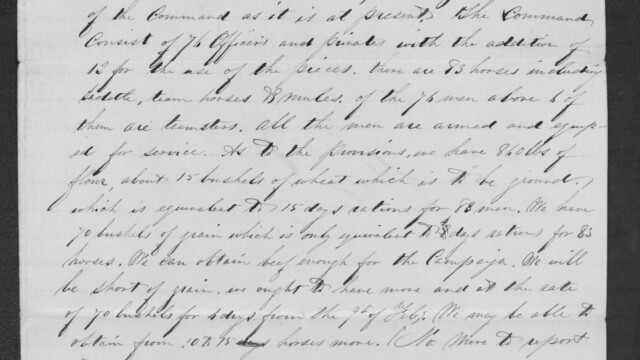 of the Command as it is at present. The Command
Consist of 76 Officers and privates with the addition of
12 for the use of the pieces. there are 83 horses including
saddle, team horses & mules. of the 76 men above 6 of
them are teamsters. all the men are armed and equip-
ed for service. As to the provisions, we have 860 lbs of
flour, about 15 bushels of wheat which is to be ground.
which is equivalent to 15 days rations for 88 men. We have
70 bushels of grain which is only equivalent to 8 days rations for 83
horses. We can obtain beef enough for the Campaign. We will
be short of grain. we ought to have more and at the rate
of 70 bushels for 4 days, from the 9th of Feby. We may be able to
obtain from 10 to 15 horses more. (No. More to report